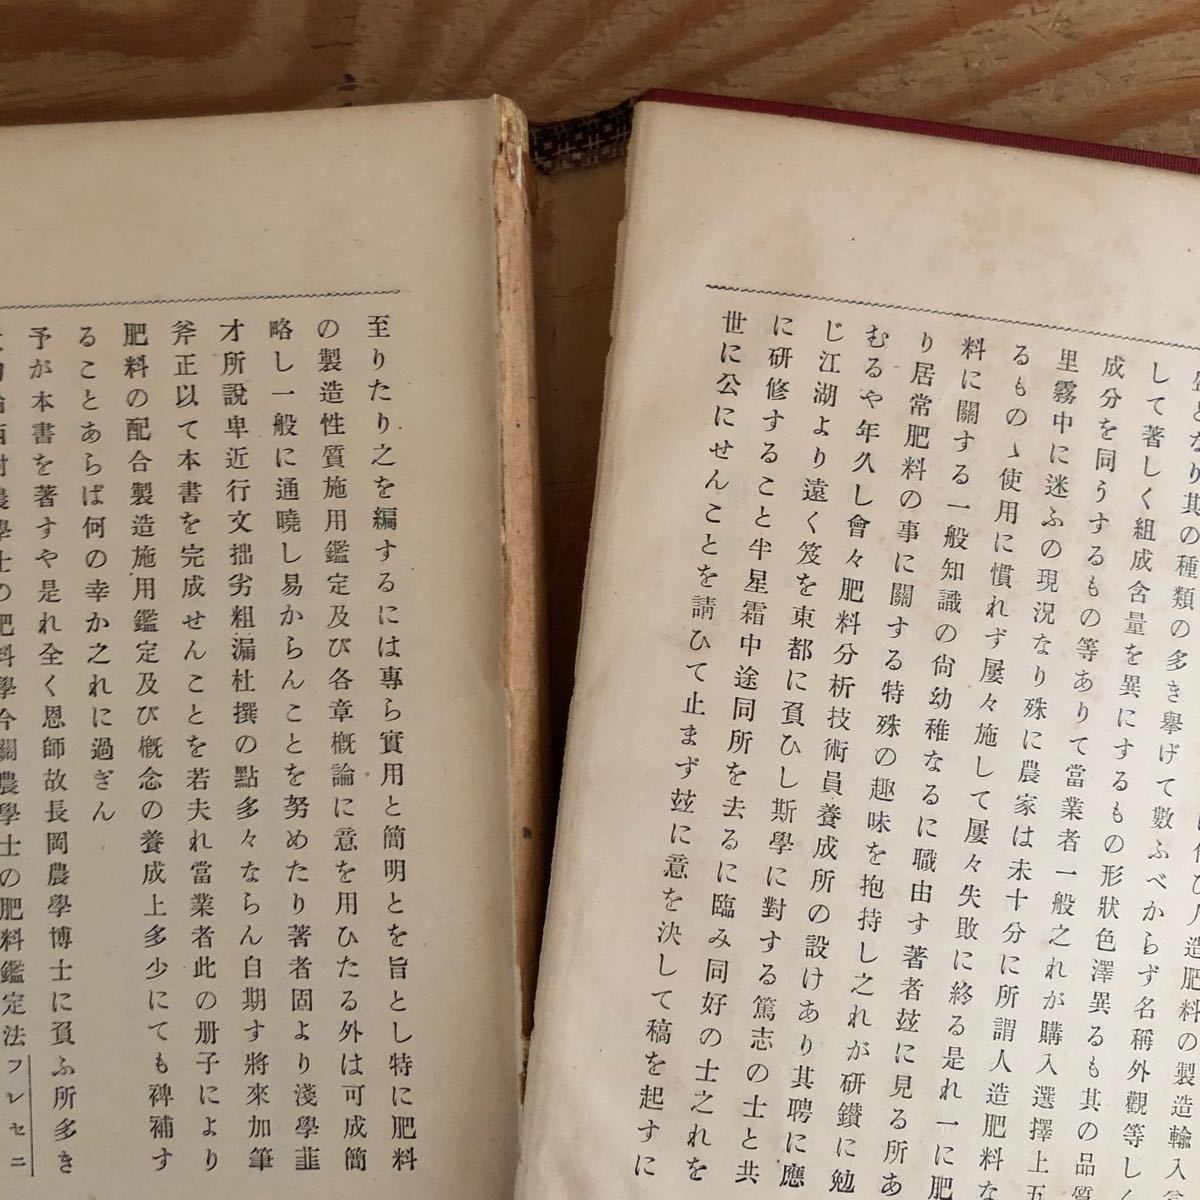 盛となり其の種類の多き擧げて數ふべからず名稱外觀等しく
して著しく組成含量を異にするもの形狀色澤異るも其の品質
成分を同うするもの等ありて當業者一般之れが購入選擇上五
里霧中に迷ふの現況なり殊に農家は未十分に所謂人造肥料な
るものゝ使用に慣れず屢々施して屢々失敗に終る是れ一に肥
料に關する一般知識の尙幼稚なるに職由す著者玆に見る所あ
り居常肥料の事に關する特殊の趣味を抱持し之れが研鑽に勉
むるや年久し會々肥料分析技術員養成所の設けあり其聘に應
じ江湖より遠く笈を東都に負ひし斯學に對する篤志の士と共
に研修すること半星霜中途同所を去るに臨み同好の士之れを
世に公にせんことを請ひて止まず玆に意を決して稿を起すに
至りたり之を編するには專ら實用と簡明とを旨とし特に肥料
の製造性質施用鑑定及び各章槪論に意を用ひたる外は可成簡
略し一般に通曉し易からんことを努めたり著者固より淺學韮
才所說卑近行文拙劣粗漏杜撰の點多々ならん自期す將來加筆
斧正以て本書を完成せんことを若夫れ當業者此の册子により
肥料の配合製造施用鑑定及び槪念の養成上多少にても裨補す
ることあらば何の幸か之れに過ぎん
予が本書を著すや是れ全く恩師故長岡農學博士に負ふ所多き
農學士の肥料學今關農學士の肥料鑑定法フレセニ